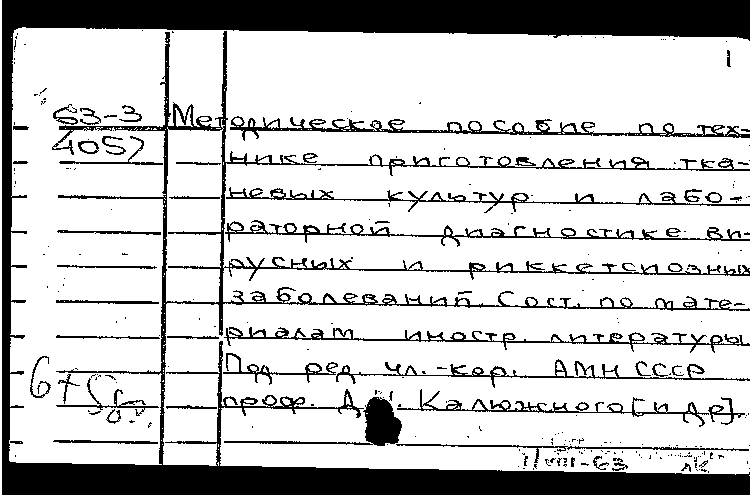 1
63-3 Методическое пособие по тех-
4057 нике приготовления тка-
невых культур и лабо-
раторной диагностике ви-
русных и риккетсиозных
заболеваний. Сост. по мате-
риалам иностр. литературы
Под ред. чл.-кор. АМН СССР
проф. Д. Н. Калюжного [и др].
1/VIII-63 лк